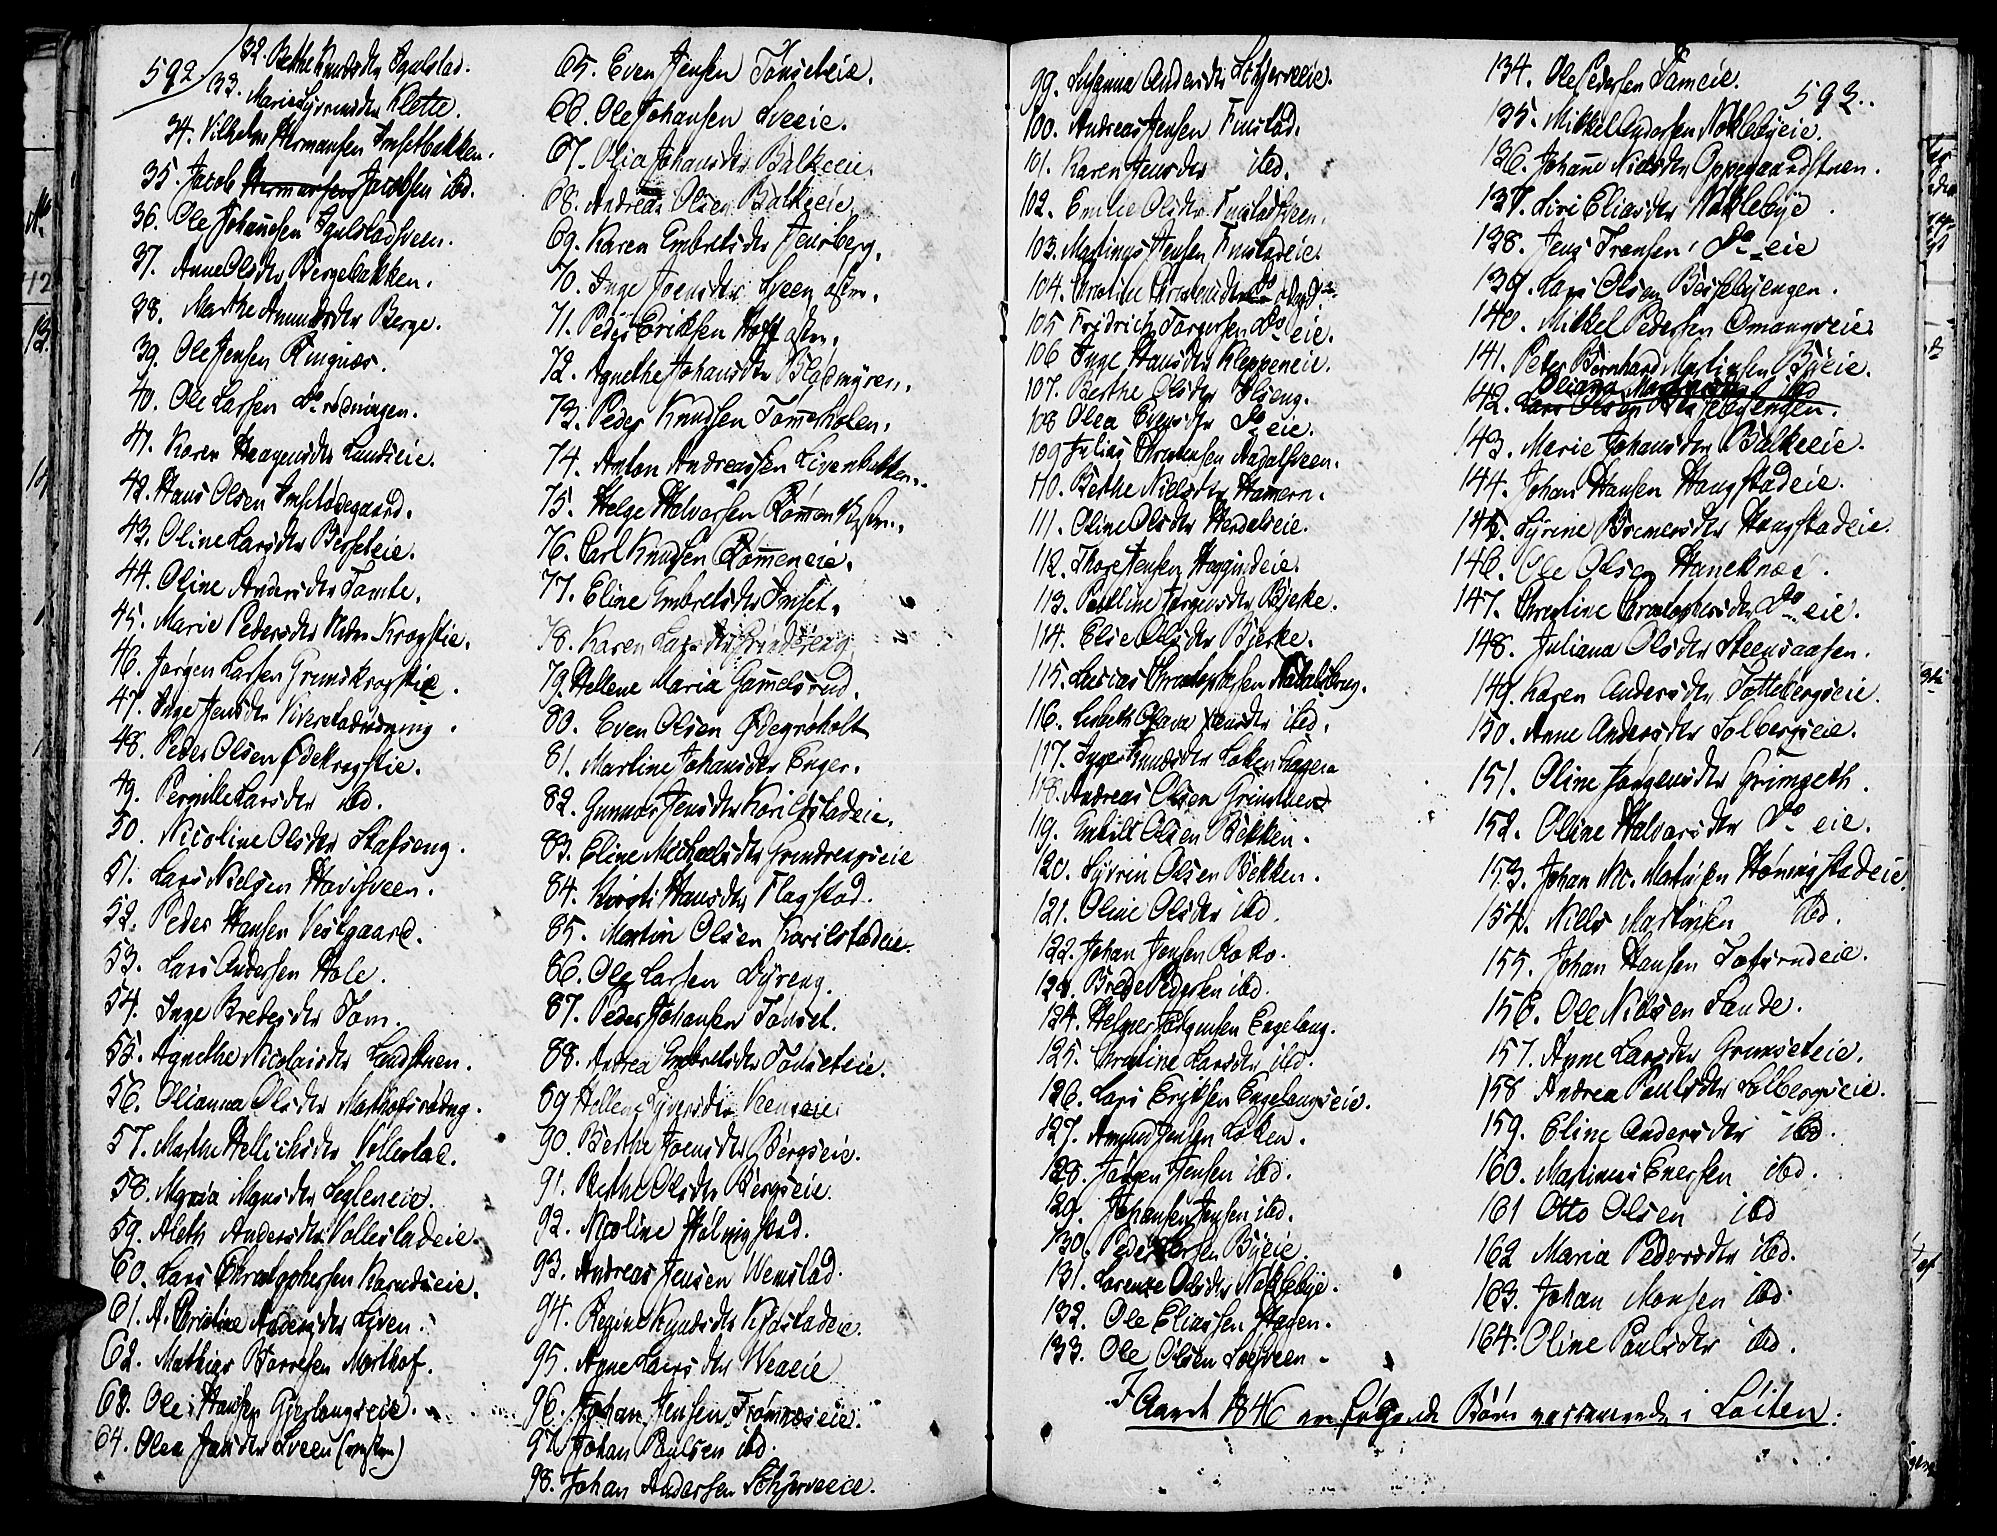 592
32. Berthe Knudsdtr Igelstad.
33. Marie Syversdtr Klette.
34. Vilhelm Hermansen Imsetbakken.
35. Jacob Hermansen Jacobsen ibd.
36. Ole Johannesen Igelstadsveen.
37. Anne Olsdtr Bergebakken.
38. Marthe Amundsdtr Berge.
39. Ole Jensen Ringnæs.
40. Ole Larsen Do rødningen.
41. Karen Haagensdtr Lundseie.
42. Hans Olsen Imsetødegaard.
43. Oline Larsdtr Berseteie.
44. Oline Andersdtr Tomte.
45. Marie Pedersdtr Neder Krogstie.
46. Jørgen Larsen Grimskrogstie.
47. Inge Jensdtr
48. Peder Olsen Ødekrogstie.
49. Pernille Larsdtr ibd.
50. Nicoline Olsdtr Skafseng.
51. Lars Nielsen Hovisveen.
52. Peder Hansen Vestgaard.
53. Lars Andersen Hole.
54. Inge Bredesdtr Tom.
55. Agnethe Nicolaisdtr Lundstuen.
56. Olianna Olsdtr
57. Marthe Hellichsdtr Vollestad.
58. Maria Magnsdtr Legleneie.
59. Aleth Andersdtr Vollestadeie.
60. Lars Christophersen Karudseie.
61. A. Christine Andersdtr Liven.
62. Mathias Borresen Morthof.
63. Ole Hansen Gjerlaugseie.
64. Olea Jansdtr Sveen (vestre)
65. Even Jensen Tønseteie.
66. Ole Johansen Sveeie.
67. Olia Johansdtr Balkeeie.
68. Andreas Olsen Balkeeie.
69. Karen Embretsdtr Jensberg.
70. Inge Joensdtr Sveen østre.
71. Peder Eriksen Hoff østre.
72. Agnethe Johansdtr Bladmyren.
73. Peder Knudsen Tommeholen.
74. Anton Andreassen Livenbakken.
75. Helge Halvorsen Rømmen
76. Carl Knudsen Rømmeneie.
77. Eline Embretsdtr Imset.
78. Karen Larsdtr Grindereng
79. Hellene Maria Gammelsrud.
80. Even Olsen Ødegrøholt
81. Martine Johansdtr Enger.
82. Gunnor Jensdtr Korilstadeie.
83. Eline Michaelsdtr Grundengseie
84. Kirsti Hansdtr Flagstad.
85. Martin Olsen Korilstadeie.
86. Ole Larsen Dyreng.
87. Peder Johansen Tønset.
88. Andrea Embretsdtr Tønseteie.
89. Hellene Syversdtr Kenseie
90. Berthe Joensdtr Bergseie.
91. Berthe Olsdtr Bergseie.
92. Nicoline Hølmigstad.
93. Andreas Jensen Wenstad.
94. Regine Knudsdtr
95. Anne Larsdtr Weaeie
96. Johan Jensen Frømnæseie.
97. Johan Paulsen ibd.
98. Johan Andersen Skjerveeie.
99. Susanna Andersdtr Skjerveeie.
100. Andreas Jensen Finstad.
101. Karen Jensdtr ibd.
102. Emilie Olsdtr Finstadsveen.
103. Martinus Jensen Finstadeie.
104. Christine Christensdtr
105. Fredrich Torgersen Do eie.
106 Inge Hansdtr Kleppeneie.
107. Berthe Olsdtr Ulseng.
108 Olea Evensdtr Do eie.
109 Julius Christensen Aadalsveen.
110. Berthe Nielsdtr Hamern.
111. Oline Olsdtr Herdalseie.
112. Thore Jensen Høgsudeie.
113. Pauline Jørgensdtr Bjerke.
114. Elise Olsdtr Bjerke.
115. Lucias Christophersen Aadalsbrug.
116. Lisbeth Olava Jensdtr ibd.
117. Inger Knudsdtr Løkenhagen
118. Andreas Olsen Grimstuen
119. Embret Olsen Bekken.
120. Syvrin Olsen Bekken.
121. Oline Olsdtr ibd.
122. Johan Jensen Koko.
123. Brede Pedersen ibd.
124. Helger Jørgensen Engelaug.
125. Christine Larsdtr ibd.
126. Lars Eriksen Engelaugseie.
127. Amund Jensen Løken.
128. Jørgen Jensen ibd.
129. Johannes Jensen ibd.
130. Peder Larsen Byeie.
131. Lorenze Olsdtr Nøklebye.
132. Ole Eliassen Hagen.
133. Ole Olsen Løvsveen.
593.
134. Ole Pedersen Tomeie.
135. Mikkel Andersen Nøklebyeie.
136. Johanne Nielsdtr Oppegaardstuen.
137. Livi Eliasdtr Nøklebye.
138. Jens Fransen, Do eie
139. Lars Olsen Berslebyengen.
140. Mikkel Pedersen Omangseie.
141. Peter Bernhard Martinsen Byeie.
142. Lars Olsen Berslebyengen. Oliana Martinsdtr ibd
143. Marie Johansdtr Balkeeie.
144. Johan Hansen Haugstadeie.
145. Syrine Bremersdtr Haugstadeie.
146. Ole Olsen Haneknæ.
147. Christine Christophersdtr Do eie.
148. Juliana Olsdtr Steensaasen.
149. Karen Andersdtr Tøttebergseie.
150. Anne Andersdtr Solbergseie.
151. Oline Jørgensdtr Grimseth.
152. Oline Halvorsdtr Do eie.
153. Johan Nic. Mathisen Hørningstadeie.
154. Niels Martinsen ibd.
155. Johan Hansen Tofsrudeie.
156. Ole Nilsen Sande.
157. Anne Larsdtr Grimseteie.
158 Andrea Paulsdtr Solbergseie.
159. Eline Andersdtr ibd.
160. Martinus Enersen ibd.
161 Otto Olsen ibd
162 Maria Pedersdtr ibd.
163. Johan Monsen ibd.
164. Oline Paulsdtr ibd.
I Aaret 1846 ere følgende Børn vaccinerede i Løiten: